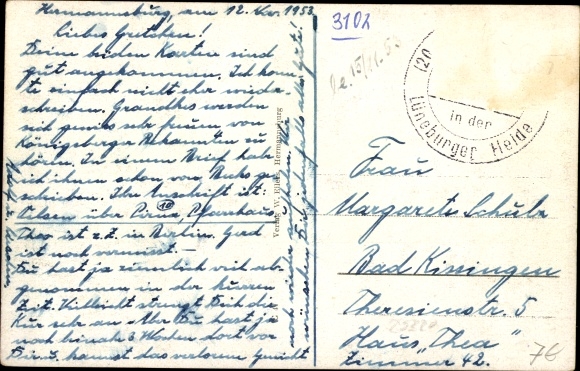 Hermannsburg, am 12. Nov. 1953
Liebes Gretchen!
Deine beiden Karten sind
gut angekommen. Ich konn-
te einfach nicht eher wieder
schreiben. Grandkes werden
sich gewiss sehr freuen von
Königsberger Bekannten zu
hören. In einem Brief habe
ich ihnen schon von Dir ge-
schrieben. Ihre Anschrift ist:
über Pirna, Pfarrhaus
Theo ist z.Z. in Berlin. Gerd
ist noch vermisst. –
Du hast ja ziemlich viel ab-
genommen in der kurzen
Zeit. Vielleicht strengt Dich die
Kur sehr an. Aber Du hast ja
noch beinah 3 Wochen dort vor
Dir u. kannst das verlorene Gewicht
noch wieder aufholen. Wir
wünschen Dir jedenfalls alles Gute!
Verlag W. Hermannsburg
3102
15/11.53
(20
in der
Lüneburger Heide
Frau
Margarete Schulz
Bad Kissingen
Theresienstr. 5
Haus „Thea"
Zimmer 42.
7€